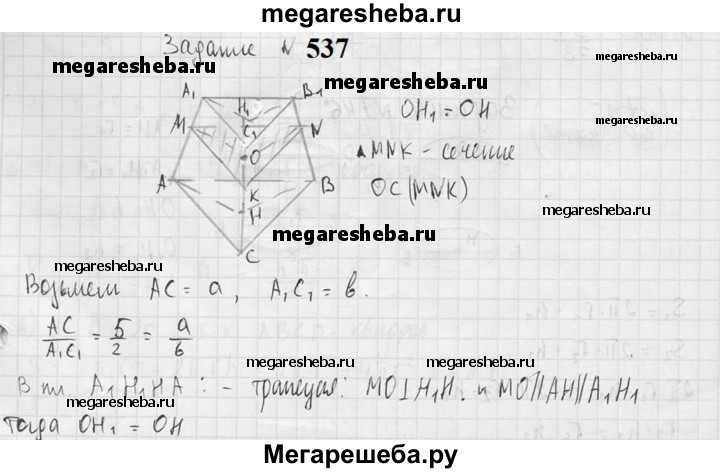 megaresheba.ru
Задание N 537
megaresheba.ru
megaresheba.ru
A₁ H₁ B₁
OH₁ = OH
M C₁ N
O
▲MNK - сечение
A K B
H
OC(MNK)
megaresheba.ru
megaresheba.ru
C
megaresheba.ru
Возьмем AC = a, A₁C₁ = b.
AC/A₁C₁ = 5/2 = a/b
megaresheba.ru
megaresheba.ru
В тр. A₁H₁HA: - трапеция: MO⊥H₁H. и MO||AH||A₁H₁
megaresheba.ru
тогда OH₁ = OH
Мегарешеба.ру